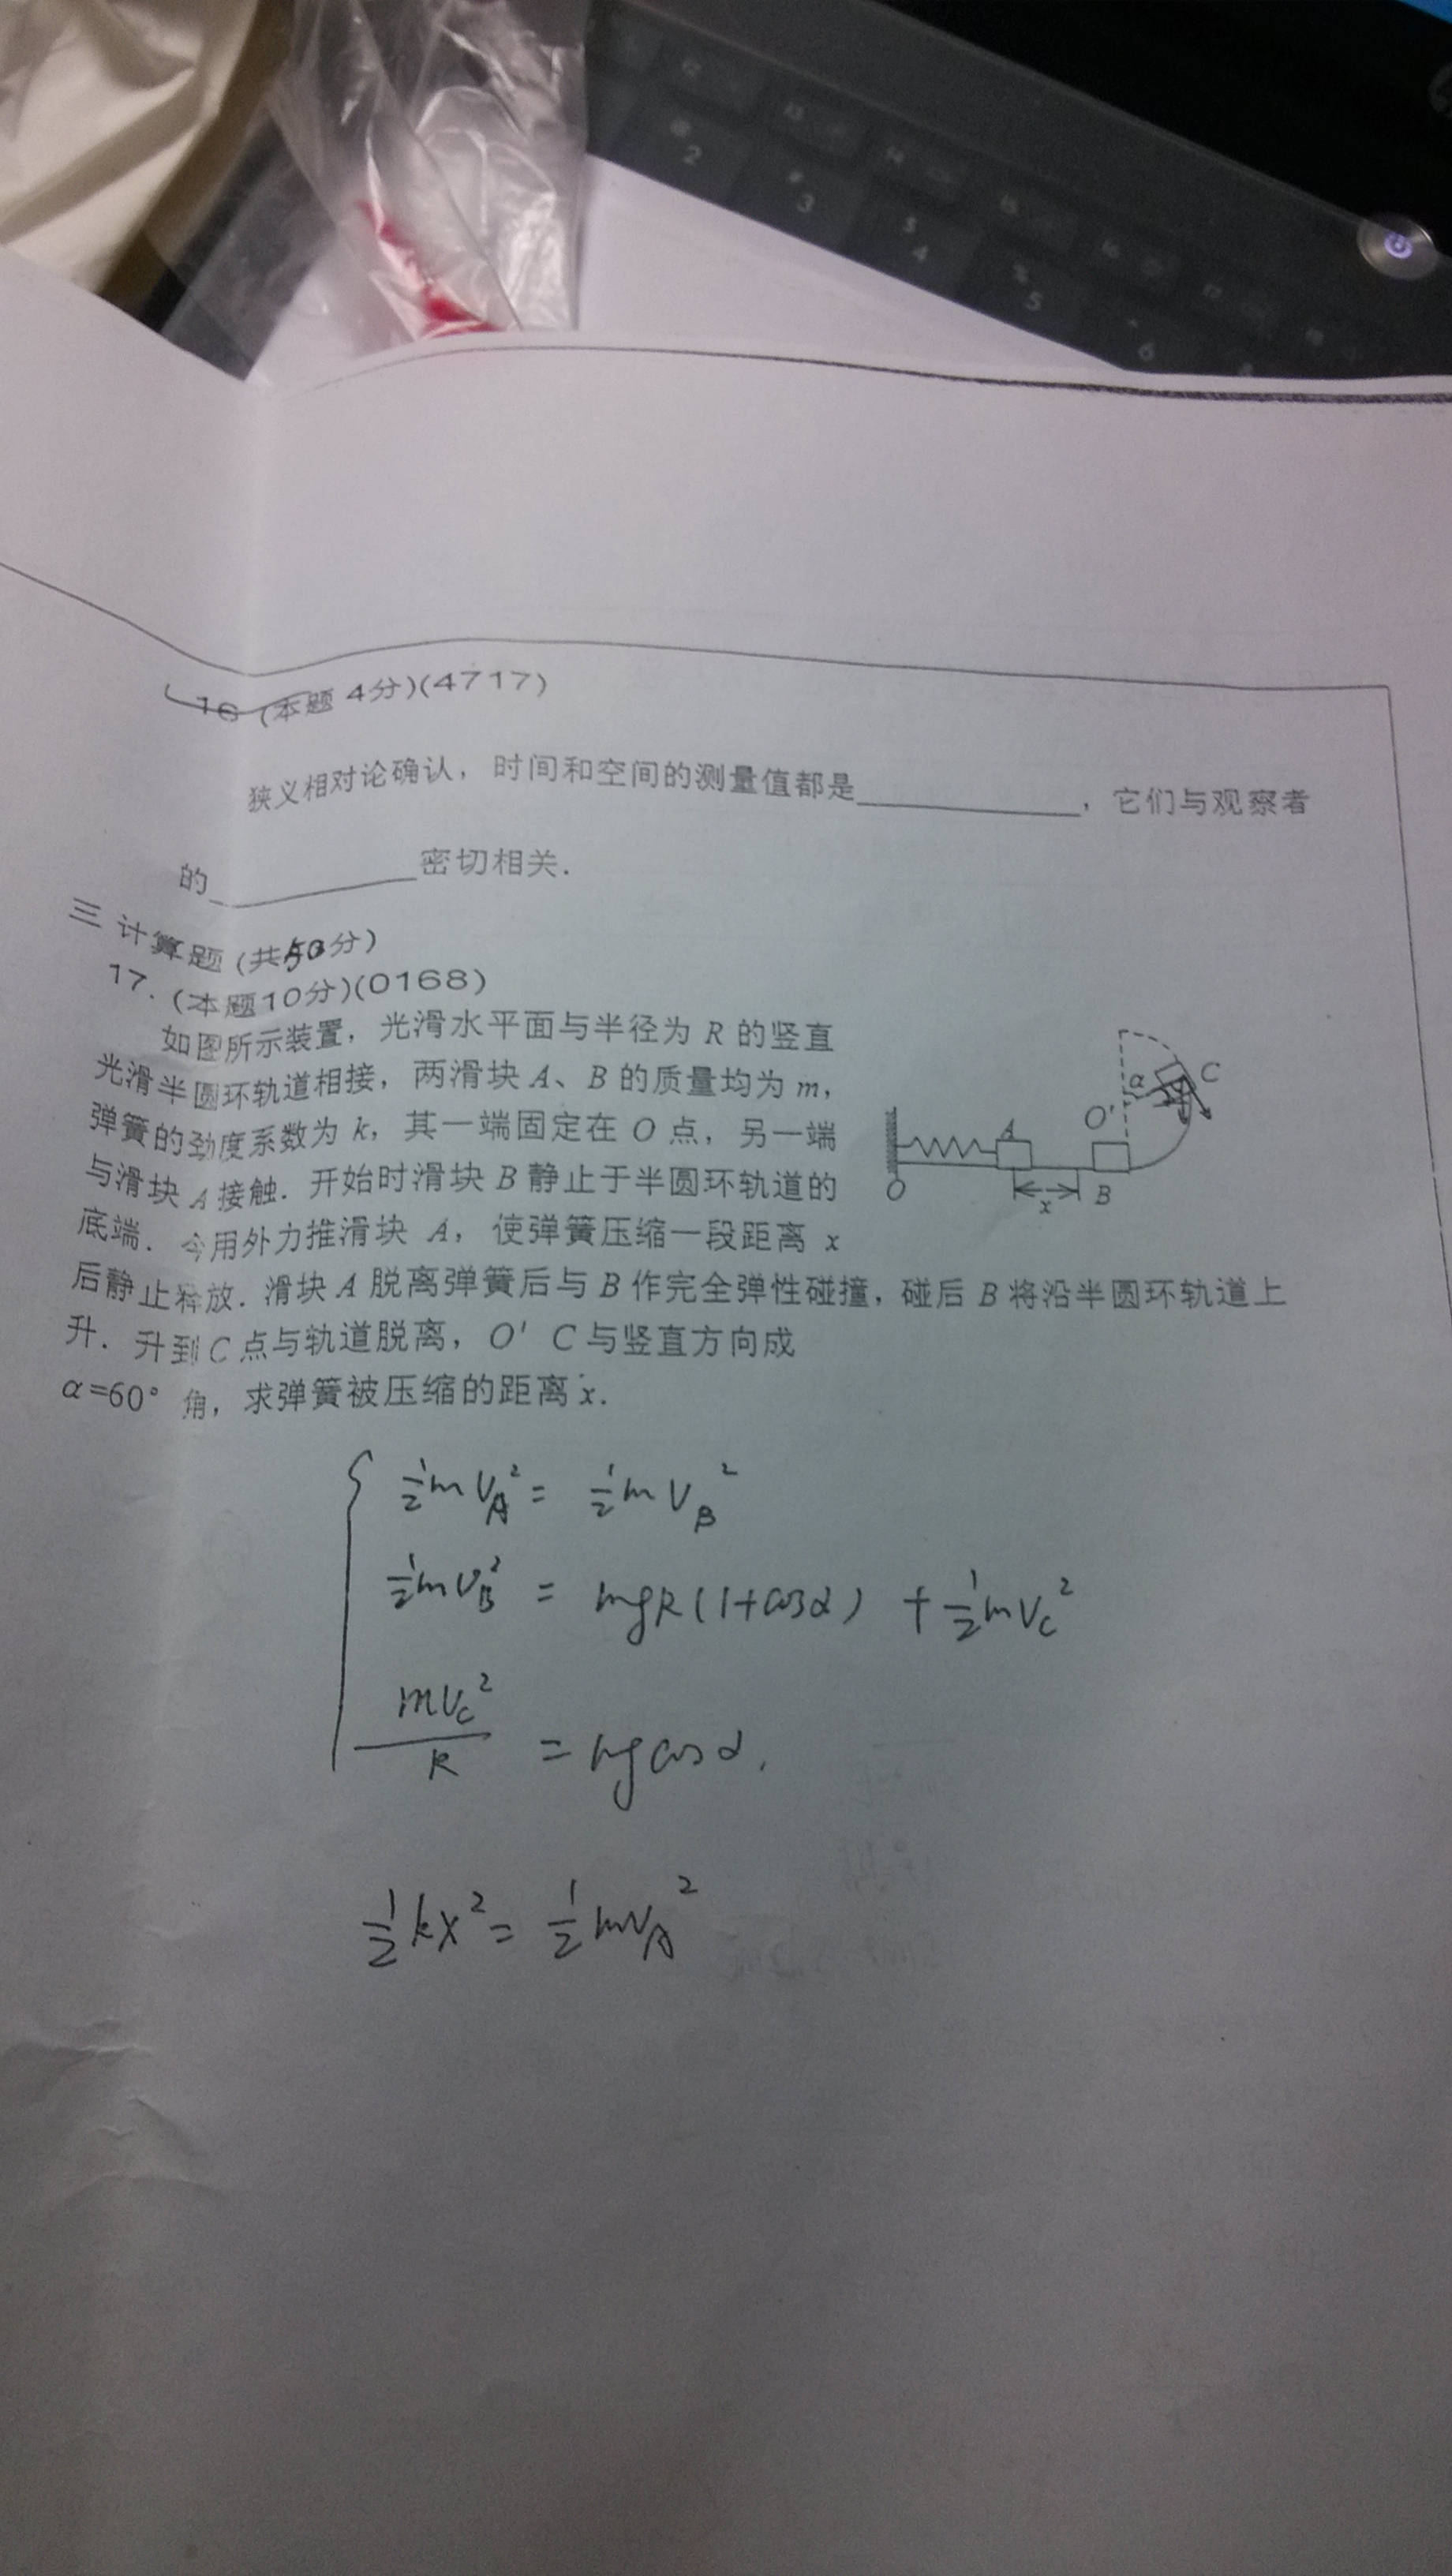 2
3
4
5
6
16 (本题 4分)(4717)
狭义相对论确认，时间和空间的测量值都是____________，它们与观察者
的____________密切相关．
三 计算题 (共50分)
17. (本题10分)(0168)
如图所示装置，光滑水平面与半径为 R 的竖直
光滑半圆环轨道相接，两滑块 A、B 的质量均为 m，
弹簧的劲度系数为 k，其一端固定在 O 点，另一端
与滑块 A 接触．开始时滑块 B 静止于半圆环轨道的
底端．今用外力推滑块 A，使弹簧压缩一段距离 x
后静止释放．滑块 A 脱离弹簧后与 B 作完全弹性碰撞，碰后 B 将沿半圆环轨道上
升．升到 C 点与轨道脱离，O' C 与竖直方向成
α=60° 角，求弹簧被压缩的距离 x．
C
α
O'
A
O
x
B
½mV_A² = ½mV_B²
½mV_B² = mgR(1+cosα) + ½mV_C²
mV_C²/R = mgcosα.
½kx² = ½mV_A²